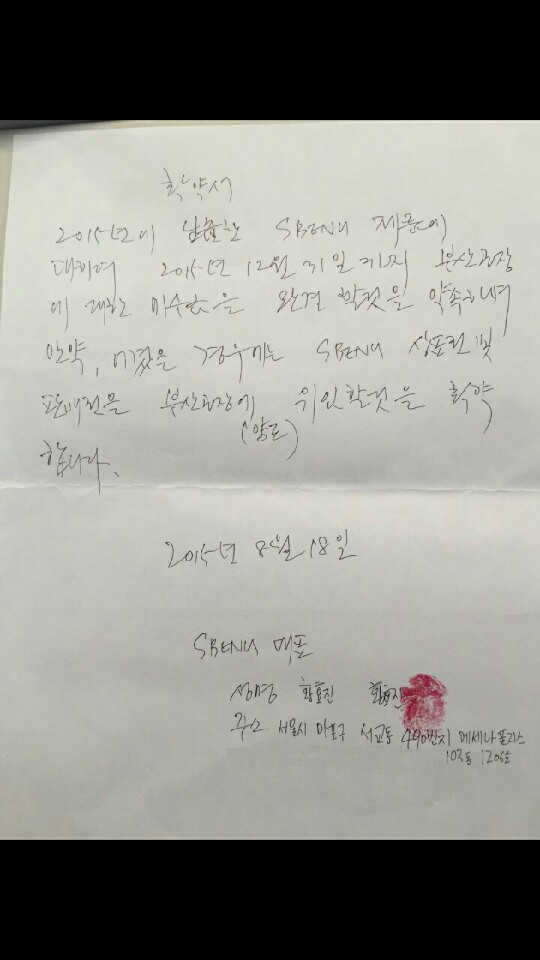 확약서
2015년에 납품한 SBENU 제품에
대하여 2015년 12월 31일 까지 부산공장
에 대한 미수금을 완결 할것을 약속하며
만약, 어겼을 경우에는 SBENU 상표권 및
판매권을 부산공장에 위임할것을 확약
(양도)
합니다.
2015년 8월 18일
SBENU 대표
성명 황효진 황효진
주소 서울시 마포구 서교동 490번지 메세나폴리스
103동 1206호